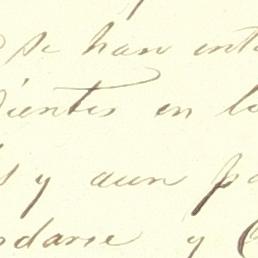 se han ent
dientes en lo
s y aun pa
darse y